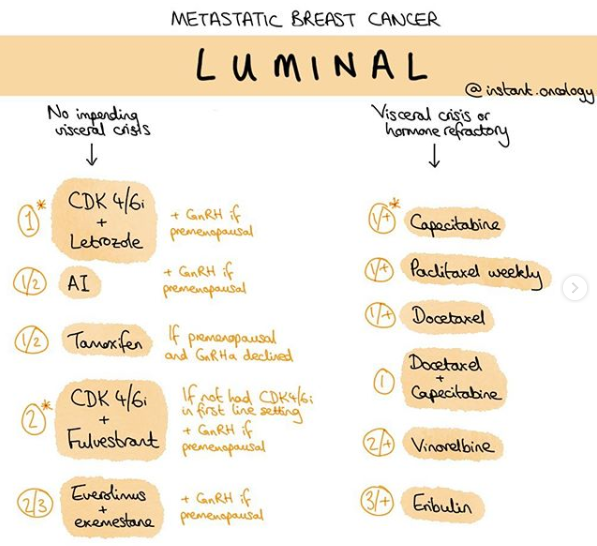 METASTATIC BREAST CANCER
LUMINAL
@instant.oncology
No impending
visceral crisis
1*
CDK 4/6i
+
Letrozole
+ GnRH if
premenopausal
1/2
AI
+ GnRH if
premenopausal
1/2
Tamoxifen
If premenopausal
and GnRHa declined
2*
CDK 4/6i
+
Fulvestrant
If not had CDK4/6i
in first line setting
+ GnRH if
premenopausal
2/3
Everolimus
+
exemestane
+ GnRH if
premenopausal
Visceral crisis or
hormone refractory
1/+*
Capecitabine
1/+
Paclitaxel weekly
1/+
Docetaxel
1
Docetaxel
+
Capecitabine
2/+
Vinorelbine
3/+
Eribulin